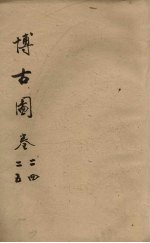 博古圖卷二四
二五